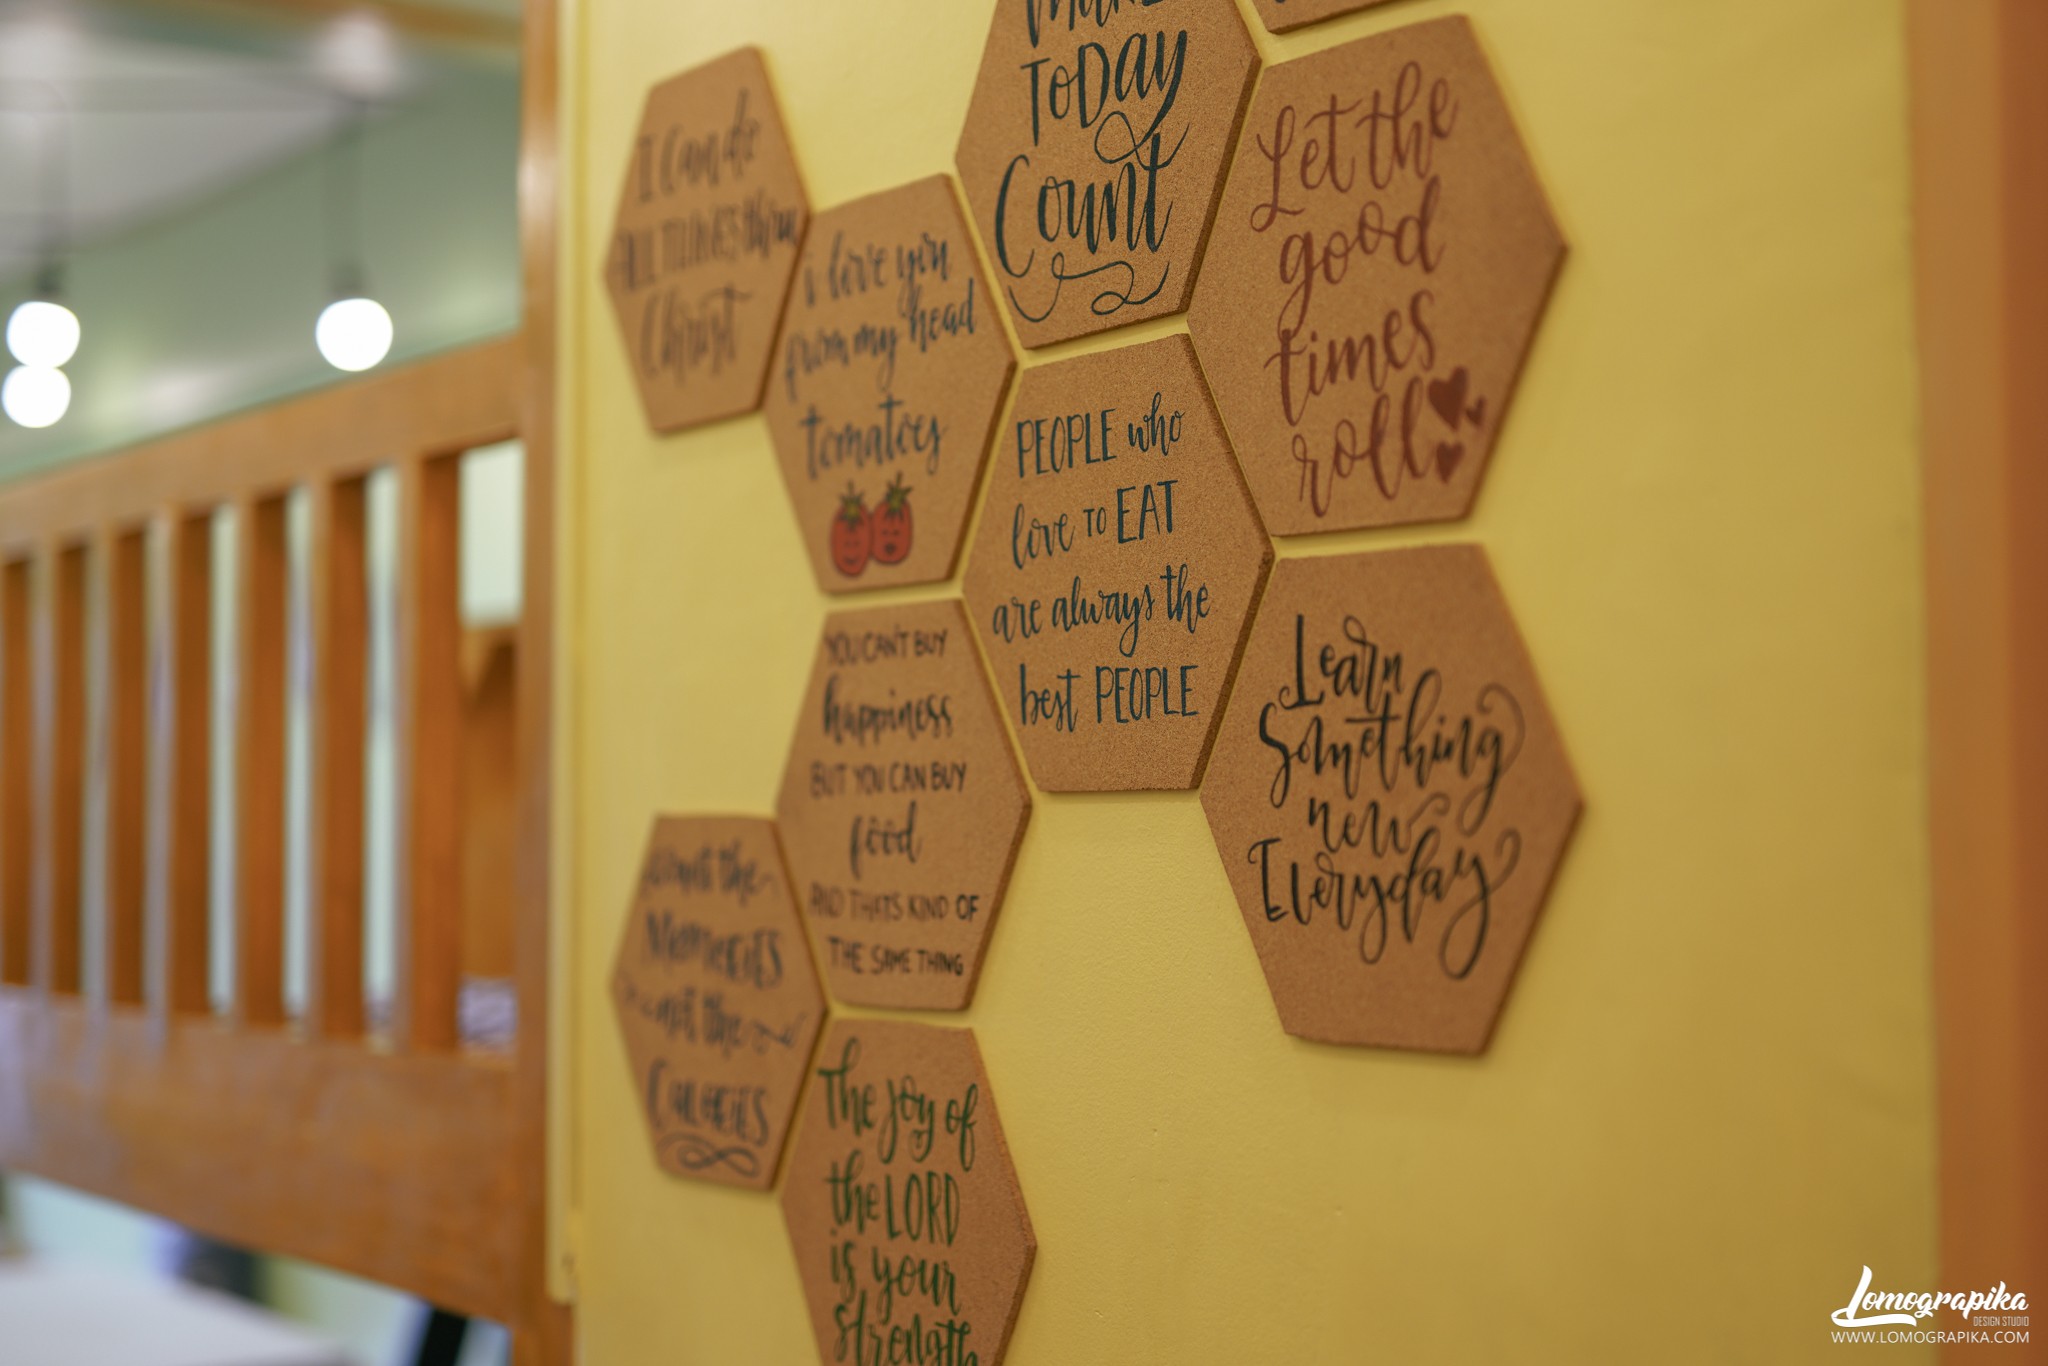 I can do
ALL THINGS thru
Christ
i love you
from my head
tomatoes
Make
TODAY
Count
Let the
good
times
roll
PEOPLE who
love to EAT
are always the
best PEOPLE
YOU CAN'T BUY
happiness
BUT YOU CAN BUY
food
AND THATS KIND OF
THE SAME THING
Learn
Something
new
Everyday
Count the
MEMORIES
not the
CALORIES
The Joy of
the LORD
is your
Strength
Lomograpika
DESIGN STUDIO
WWW.LOMOGRAPIKA.COM